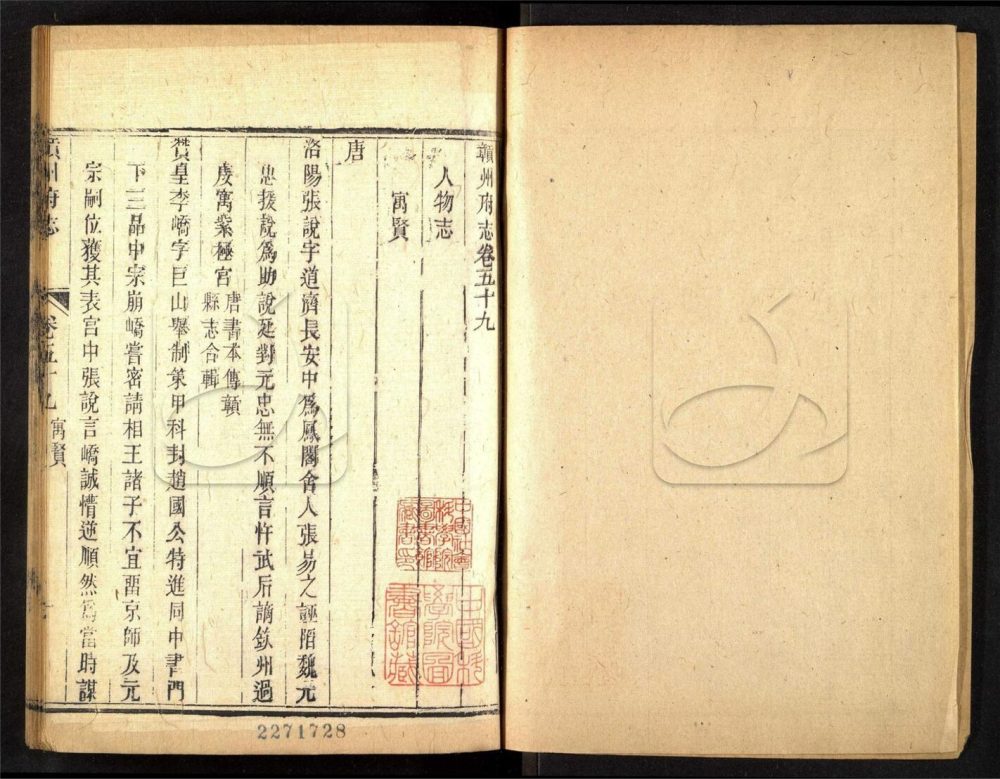 贛州府志卷五十九
人物志
寓賢
唐
洛陽張說字道濟長安中爲鳳閣舍人張易之誣陷魏元
忠援說爲助說延對元忠無不順言忤武后謫欽州過
虔寓紫極宮
唐書本傳贛
縣志合輯
贊皇李嶠字巨山舉制策甲科封趙國公特進同中書門
下三品中宗崩嶠嘗密請相王諸子不宜畱京師及元
宗嗣位獲其表宮中張說言嶠誠懵逆順然爲當時謀
贛州府志
卷五十九
寓賢
中國社會
科學院
圖書館
藏書印
中國科
學院圖
書館藏
2271728